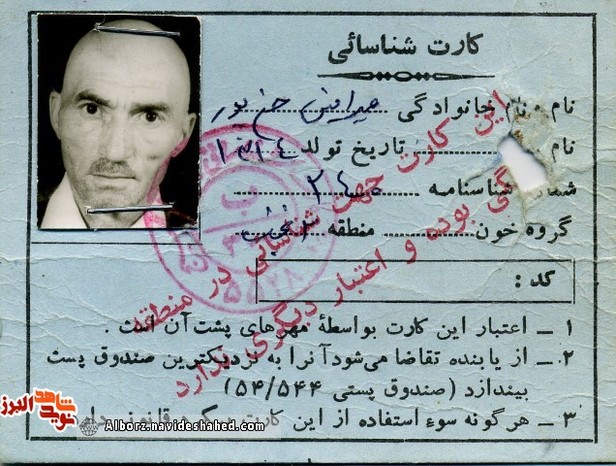 کارت شناسائی
نام و نام خانوادگی
نام تاریخ تولد ۱۳۱۴
شناسنامه ۲۴
گروه خون منطقه
کد :
۱ ـ اعتبار این کارت بواسطهٔ مهرهای پشت آن است .
۲ ـ از یابنده تقاضا می‌شود آنرا به نزدیکترین صندوق پست
بیندازد (صندوق پستی ۵۴/۵۴۴)
۳ ـ هرگونه سوءِ استفاده از این کارت
این کارت جهت شناسائی در منطقه
بوده و اعتبار دیگری ندارد
نوید شاهد البرز
Alborz.navideshahed.com